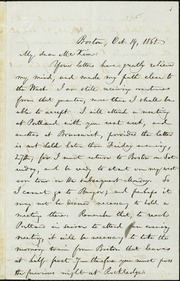 Boston, Oct. 19, 1865
My dear McKim:
Your letter has greatly relieved
my mind, and made my path clear to
the West. I am still receiving invitations
from that quarter, more than I shall be
able to accept. I will attend a meeting
at Portland with you next week, and
another at Brunswick, provided the latter is
not held later than Friday evening,
for I must return to Boston on Sat-
urday, and be ready to start on my west-
ern tour on the subsequent Monday. So
I cannot go to Bangor; and perhaps it
may not be deemed necessary to hold a
meeting there. Remember that, to reach
Portland in season to attend an evening
meeting, it will be necessary to take the
morning train from Boston that leaves
at half past 7 — therefore you must pass
the previous night at Rockledge.